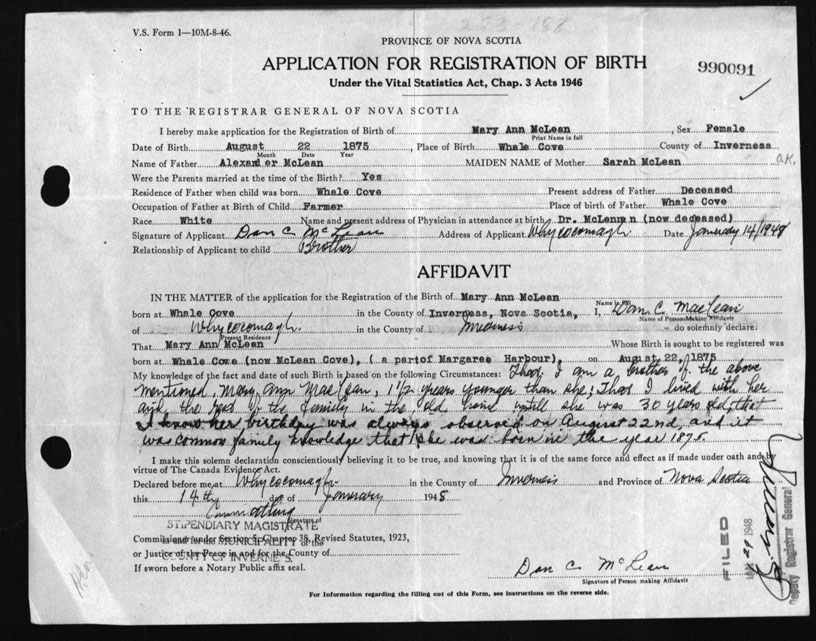 V.S. Form 1—10M-8-46.
PROVINCE OF NOVA SCOTIA
APPLICATION FOR REGISTRATION OF BIRTH
990091
Under the Vital Statistics Act, Chap. 3 Acts 1946
TO THE REGISTRAR GENERAL OF NOVA SCOTIA
I hereby make application for the Registration of Birth of Mary Ann McLean, Sex Female
Print Name in full
Date of Birth August 22 1875, Place of Birth Whale Cove County of Inverness
Month Date Year
Name of Father Alexander McLean MAIDEN NAME of Mother Sarah McLean O.K.
Were the Parents married at the time of the Birth? Yes
Residence of Father when child was born Whale Cove Present address of Father Deceased
Occupation of Father at Birth of Child Farmer Place of birth of Father Whale Cove
Race White Name and present address of Physician in attendance at birth Dr. McLennan (now deceased)
Signature of Applicant Dan C. McLean Address of Applicant Whycocomagh Date January 14/1948
Relationship of Applicant to child Brother
AFFIDAVIT
IN THE MATTER of the application for the Registration of the Birth of Mary Ann McLean
born at Whale Cove in the County of Inverness, Nova Scotia, I, Dan. C. MacLean
Name of Person Making Affidavit
of Whycocomagh in the County of Inverness do solemnly declare:
Present Residence
That Mary Ann McLean Whose Birth is sought to be registered was
born at Whale Cove (now McLean Cove), ( a part of Margaree Harbour), on August 22, 1875
My knowledge of the fact and date of such Birth is based on the following Circumstances: That I am a brother of the above
mentioned, Mary Ann MacLean, 1½ years younger than she; That I lived with her
and the rest of the family in the old home until she was 30 years old, that
I know her birthday was always observed on August 22nd, and it
was common family knowledge that she was born in the year 1875.
I make this solemn declaration conscientiously believing it to be true, and knowing that it is of the same force and effect as if made under oath and by
virtue of The Canada Evidence Act.
Declared before me at Whycocomagh in the County of Inverness and Province of Nova Scotia
this 14th day of January 1948
Signature of
STIPENDIARY MAGISTRATE
Commissioner under Section 5, Chapter 38, Revised Statutes, 1923,
in and for the MUNICIPALITY of the
or Justice of the Peace in and for the County of
COUNTY OF INVERNESS.
If sworn before a Notary Public affix seal.
Dan C McLean
Signature of Person making Affidavit
For Information regarding the filling out of this Form, see instructions on the reverse side.
FILED
1948
Deputy Registrar General